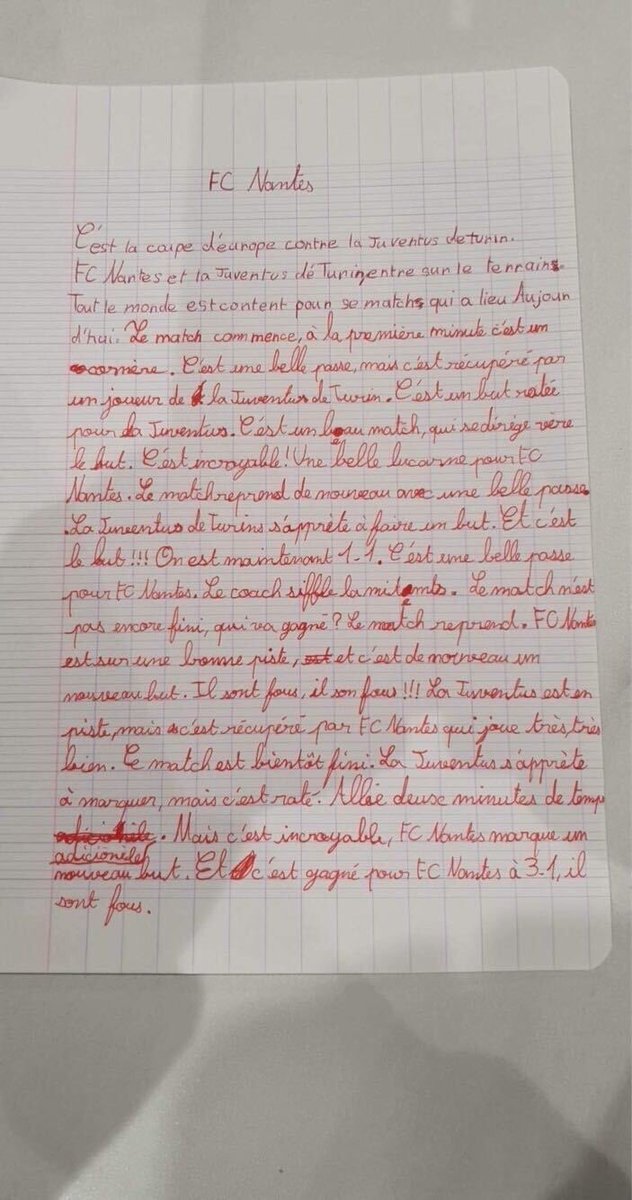 FC Nantes
C'est la coupe d'éurope contre la Juventus de turin.
FC Nantes et la Juventus dé Turin, entre sur le terrains.
Tout le monde est content pour se matchs qui a lieu Aujour
d'hui. Le match commence, à la première minute c'est un
cornière. C'est une belle passe, mais c'est récupéré par
un joueur de la Juventus de Turin. C'est un but ratée
pour la Juventus. C'ést un beau match, qui se dirége vère
le but. C'ést incroyable! Une belle lucarne pour FC
Nantes. Le match reprend de nouveau avec une belle passe
. La Juventus de Turins s'apprète à faire un but. Et c'ést
le but!!! On est maintenant 1-1. C'ést une belle passe
pour FC Nantes. Le coach siffle la mitembs. Le match n'est
pas encore fini, qui va gagné? Le match reprend. FC Nantes
est sur une bonne piste, et c'est de nouveau un
nouveau but. Il sont fous, il son fous!!! La Juventus est en
piste, mais c'est récupéré par FC Nantes qui joue très, très
bien. Ce match est bientôt fini. La Juventus s'apprète
à marquer, mais c'est raté. Allée deuse minutes de temp
adicionèles. Mais c'est incroyable, FC Nantes marque un
nouveau but. Et c'est gagné pour FC Nantes à 3-1, il
sont fous.